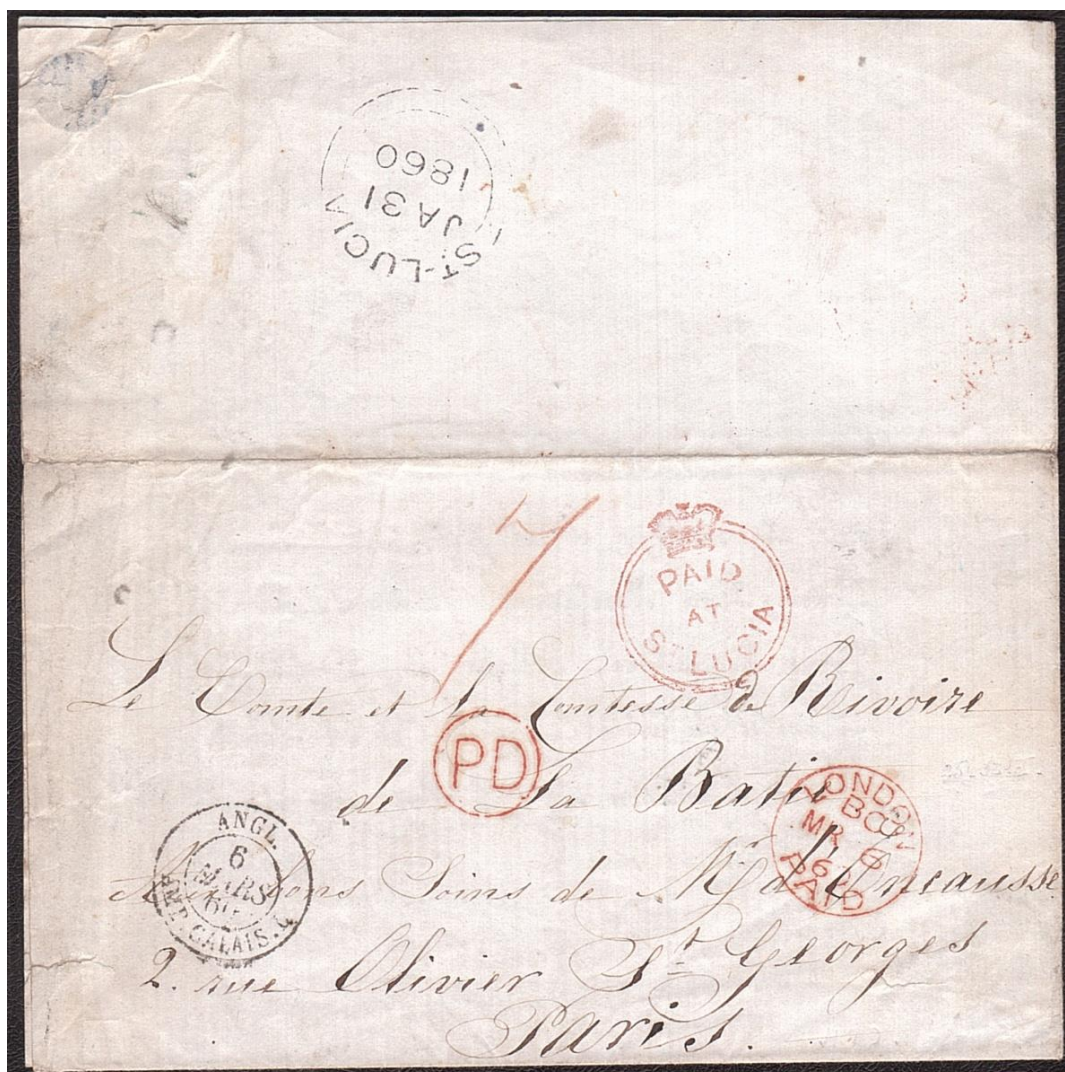 St. LUCIA
JA 31
1860
PAID
AT
St LUCIA
Le Comte et la Comtesse de Rivoire
de La Batie
PD
LONDON
MR 6
60
PAID
ANGL.
6
MARS
60
AMB. CALAIS
bons Soins de Mr
2. rue Olivier St Georges
Paris.